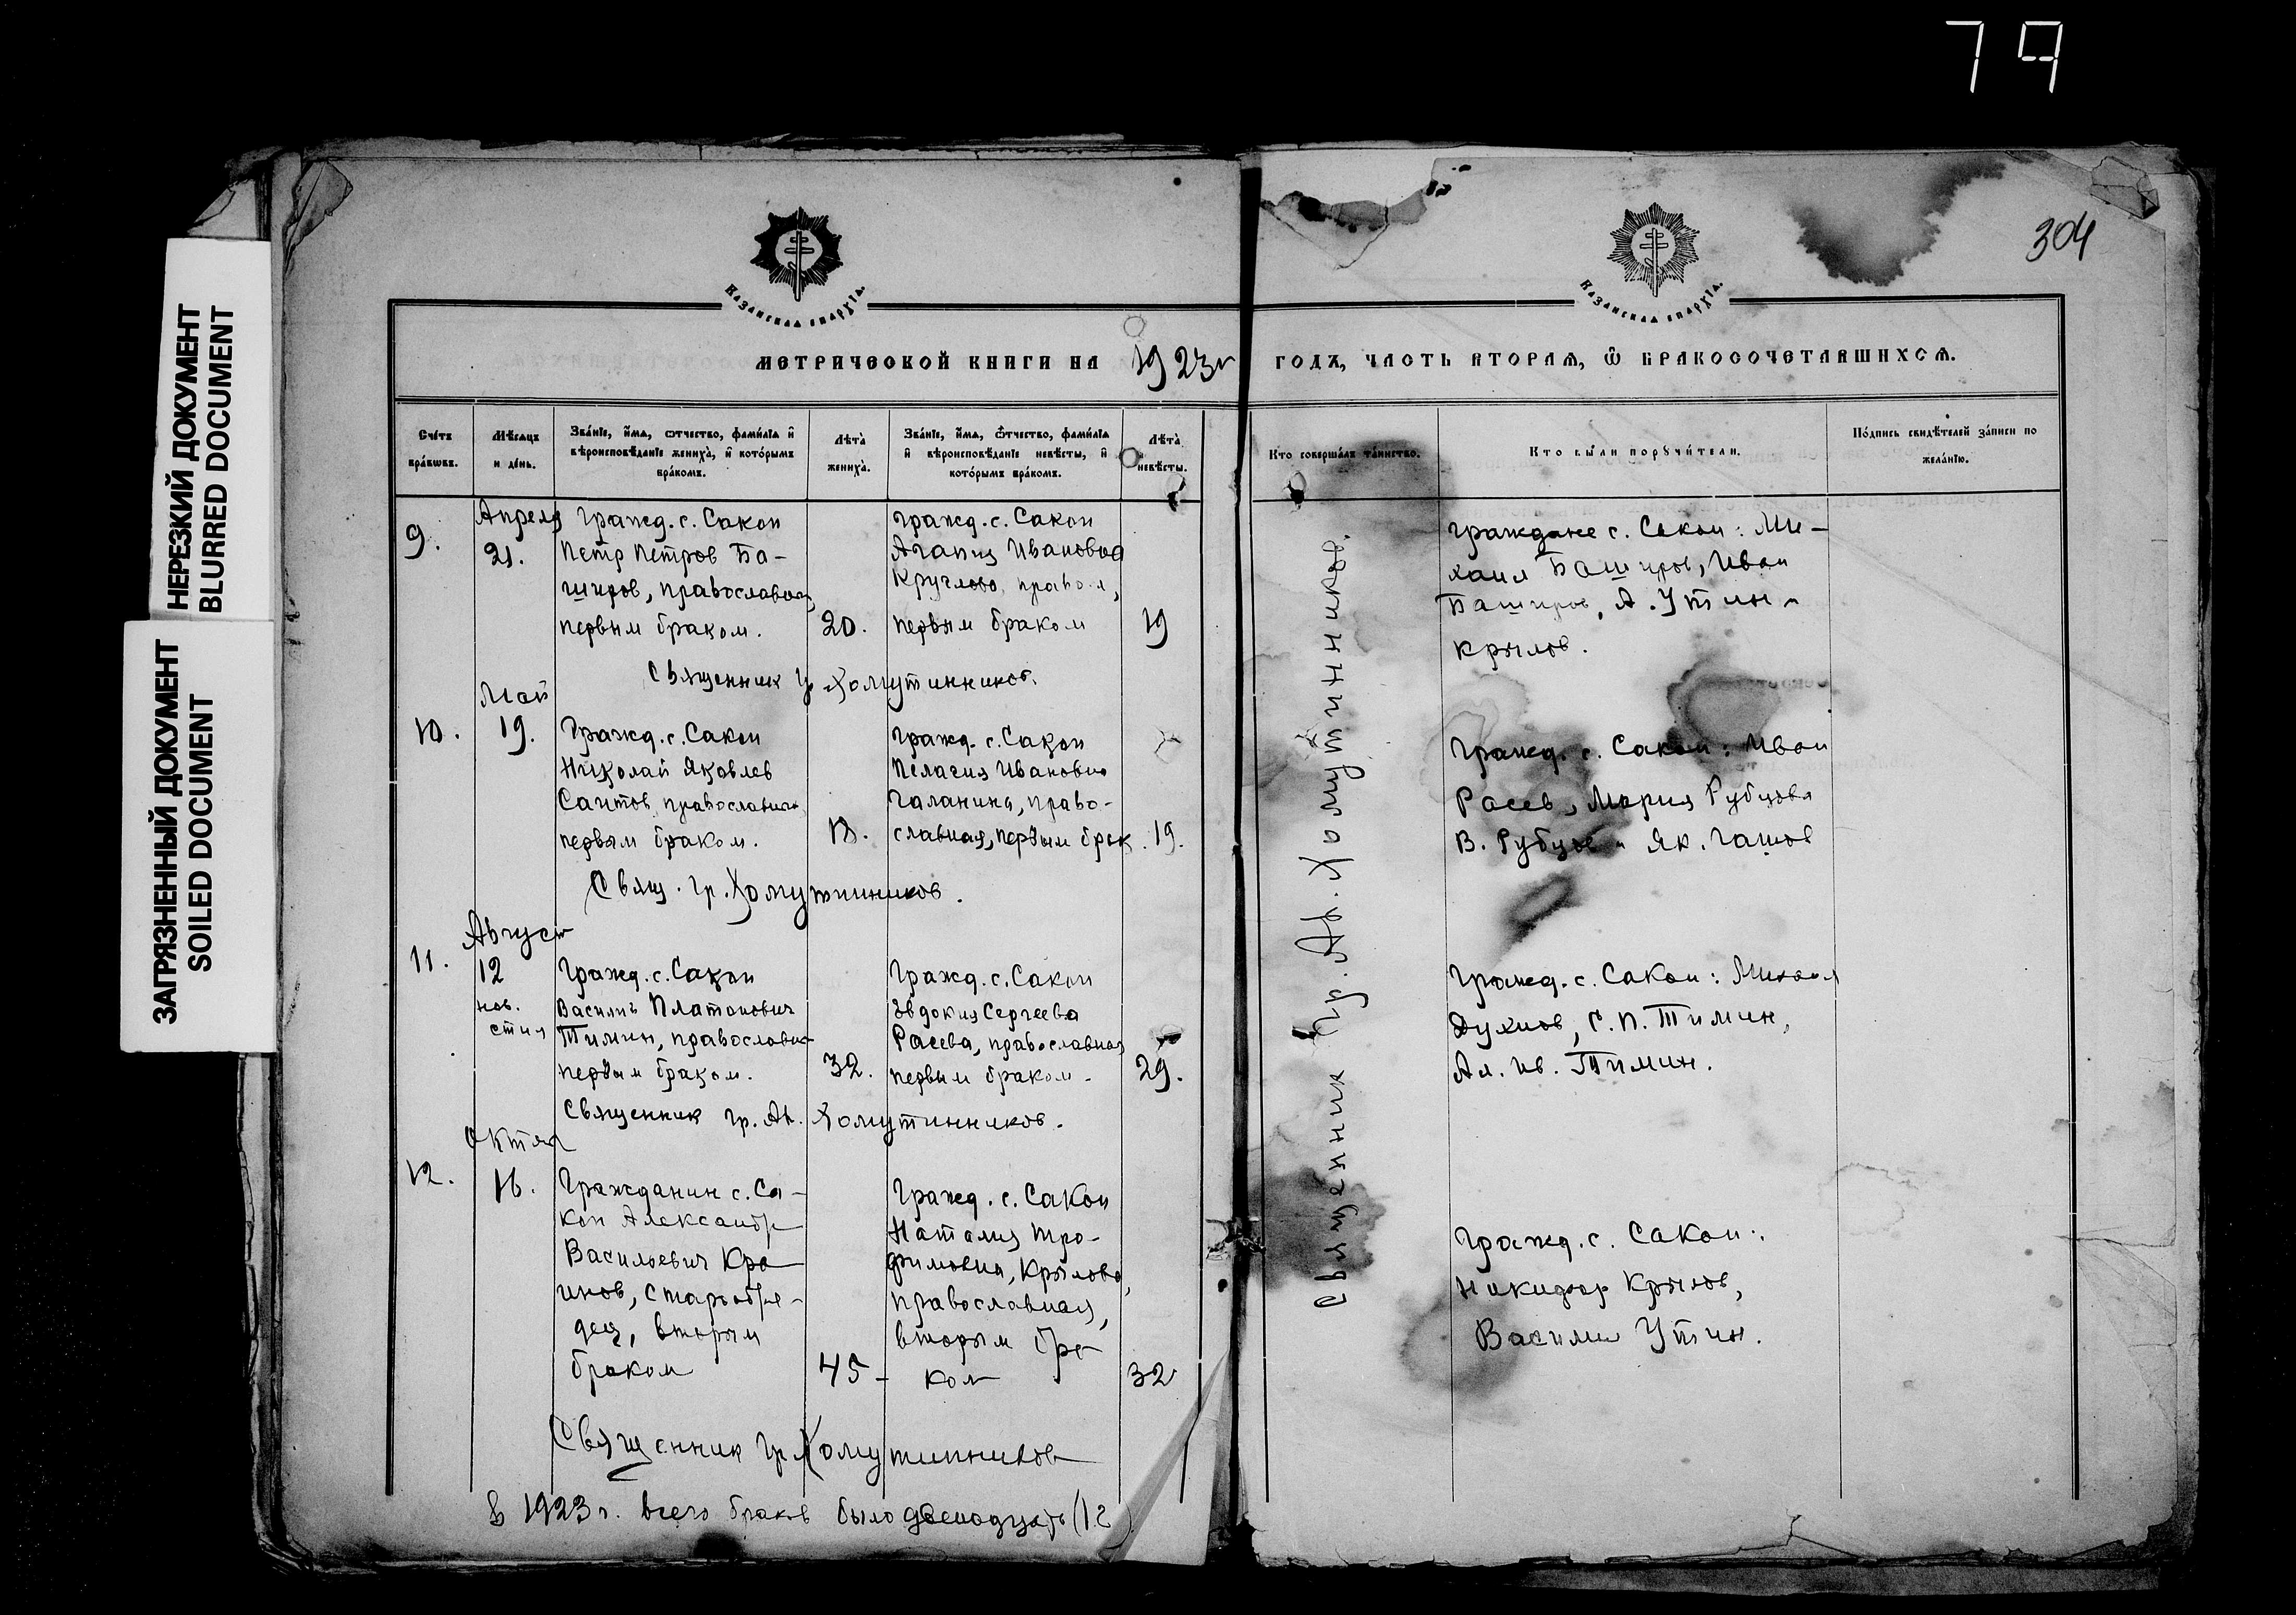 79
304
НЕРЕЗКИЙ ДОКУМЕНТ
BLURRED DOCUMENT
ЗАГРЯЗНЕННЫЙ ДОКУМЕНТ
SOILED DOCUMENT
Казанская епархїа.
Казанская епархїа.
МЕТРИЧЕСКОЙ КНИГИ НА 1923 г ГОДЪ, ЧАСТЬ ВТОРАЯ, Ѿ БРАКОСОЧЕТАВШИХСЯ.
Сче́тъ
бра́кωвъ.
Мѣ́сяцъ
и де́нь.
Зва́нїе, и́мѧ, ѻтчество, фами́лїѧ и҆
вѣроисповѣ́данїе жениха̀, и҆ кото́рымъ
бра́комъ.
Лѣ́та
жениха̀.
Зва́нїе, и́мѧ, ѻтчество, фами́лїѧ
и҆ вѣроисповѣ́данїе невѣ́сты, и҆
кото́рымъ бра́комъ.
Лѣ́та
невѣ́сты.
Кто соверша́лъ та́инство.
Кто бы́ли порꙋчи́тели.
По́дпись свидѣ́телей за́писи по
жела́нїю.
9.
Апреля
21.
Гражд. с. Сакон
Петр Петров Ба-
широв, православн,
первым браком.
20.
гражд. с. Сакон
Агапия Ивановна
Круглова, правосл,
первым браком
19
Граждане с. Сакон: Ми-
хаил Баширов, Иван
Баширов, А. Утин
Крылов.
Священник гр Хомутинников.
10.
Май
19.
Гражд. с. Сакон
Николай Яковлев
Саитов, православн
первым браком.
18.
гражд. с. Сакон
Пелагия Ивановна
Галанина, право-
славная, первым брак.
19.
Гражд. с. Сакон: Иван
Расев, Мария Рубцова
В. Рубцов Як. Гашов
Свящ. гр. Хомутинников.
11.
Август
12
нов.
стил
Гражд. с. Сакон
Василий Платонович
Тимин, православн
первым браком.
32.
Гражд. с. Сакон
Евдокия Сергеева
Расева, православная
первым браком.
29.
Гражд. с. Сакон: Михаил
Духнов, С. П. Тимин,
Ал. Ив. Тимин.
Священник гр. Ав. Хомутинников.
12.
Октяб
16.
Гражданин с. Са-
кон Александр
Васильевич Кра
инов, старообря-
дец, вторым
браком
45
Гражд. с. Сакон
Наталия Тро-
фимовна, Крылова,
православная,
вторым бра
ком
32
Гражд. с. Сакон:
Никифор Крылов,
Василий Утин.
Священник гр Хомутинников
В 1923 г. всего браков было двенадцать (12).
Священник Гр. Ав. Хомутинников.